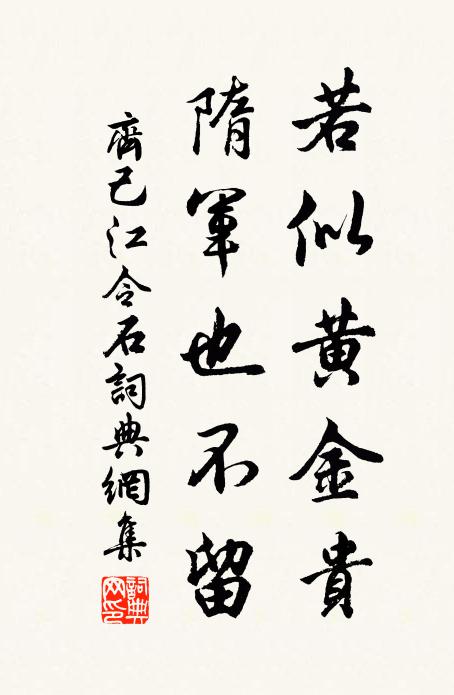 若似黄金貴
隋軍也不留
齊己江令石詞典網集
詞典網印